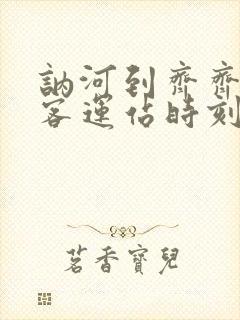 訥河到齊齊
客運佔時刻
茗香寶兒